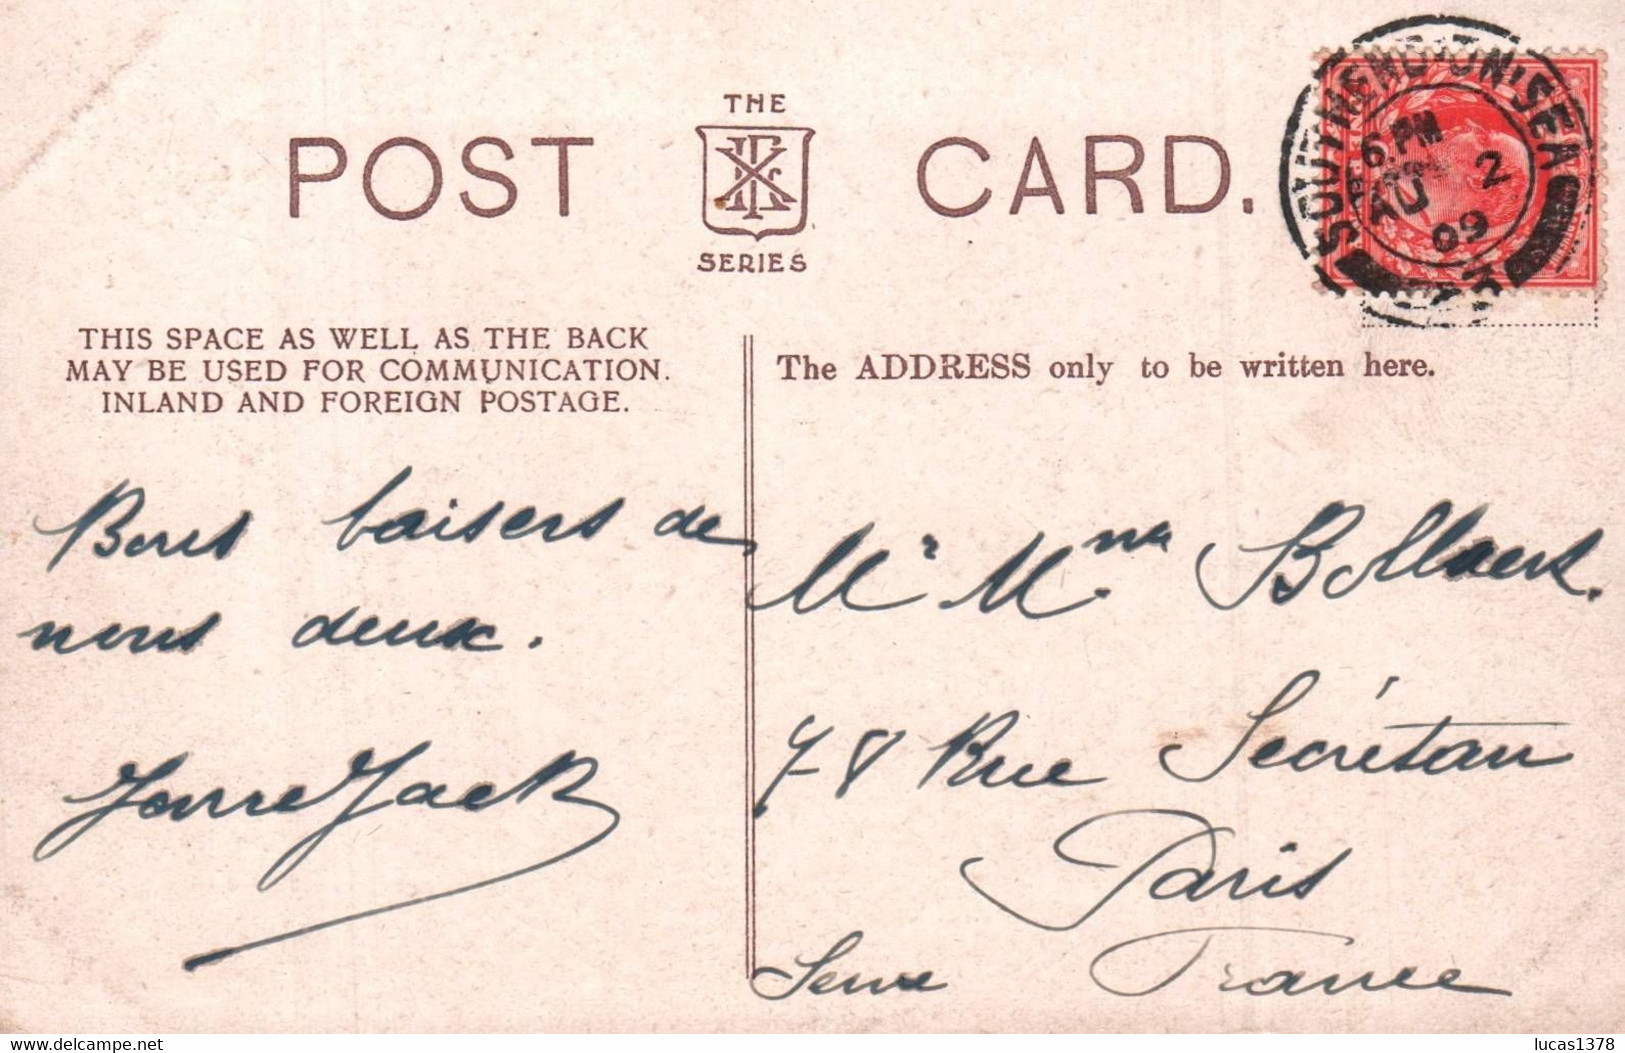 THE
POST CARD.
SERIES
SOUTHEND-ON-SEA
6. PM
AU 2
09
THIS SPACE AS WELL AS THE BACK
MAY BE USED FOR COMMUNICATION.
INLAND AND FOREIGN POSTAGE.
The ADDRESS only to be written here.
Bons baisers de
nous deux.
Jack
Mr Mme Bollaert.
78 Rue Secrétan
Paris
Seine France
www.delcampe.net
lucas1378